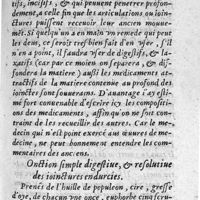 tifs, incisifs, & qui peuuent penetrer profon-
dement, a celle fin que les articulations ou ioin-
ctures puissent receuoir leur ancien mouue-
mēt. Si quelqu'un a en main vn remede qui peut
les deux, ce seroit tresbien fait d'en vser, s'il
n'en a point, il faudra vser de digestifs, & la-
xatifs (car par ce moien on separera, & dif-
fondera la matiere) aussi les medicaments at-
tractifs de la matiere contenue au profond des
ioinctures sont souuerains. D'auantage i'ay esti-
mé fort conuenable d'escrire icy les compositi-
ons des medicaments, affin qu'on ne soit con-
traint de les recueillir des autres. Car le me-
decin qui n'est point exercé aux œuures de me-
decine, ne peut bonnement entendre les com-
mentaires des anciens.
Onction simple digestiue, & resolutiue
des ioinctures endurcies.
Prenés de l'huille de populeon, cire, gresse
d'oye, de chacun vne once, euphorbe cinq scru-